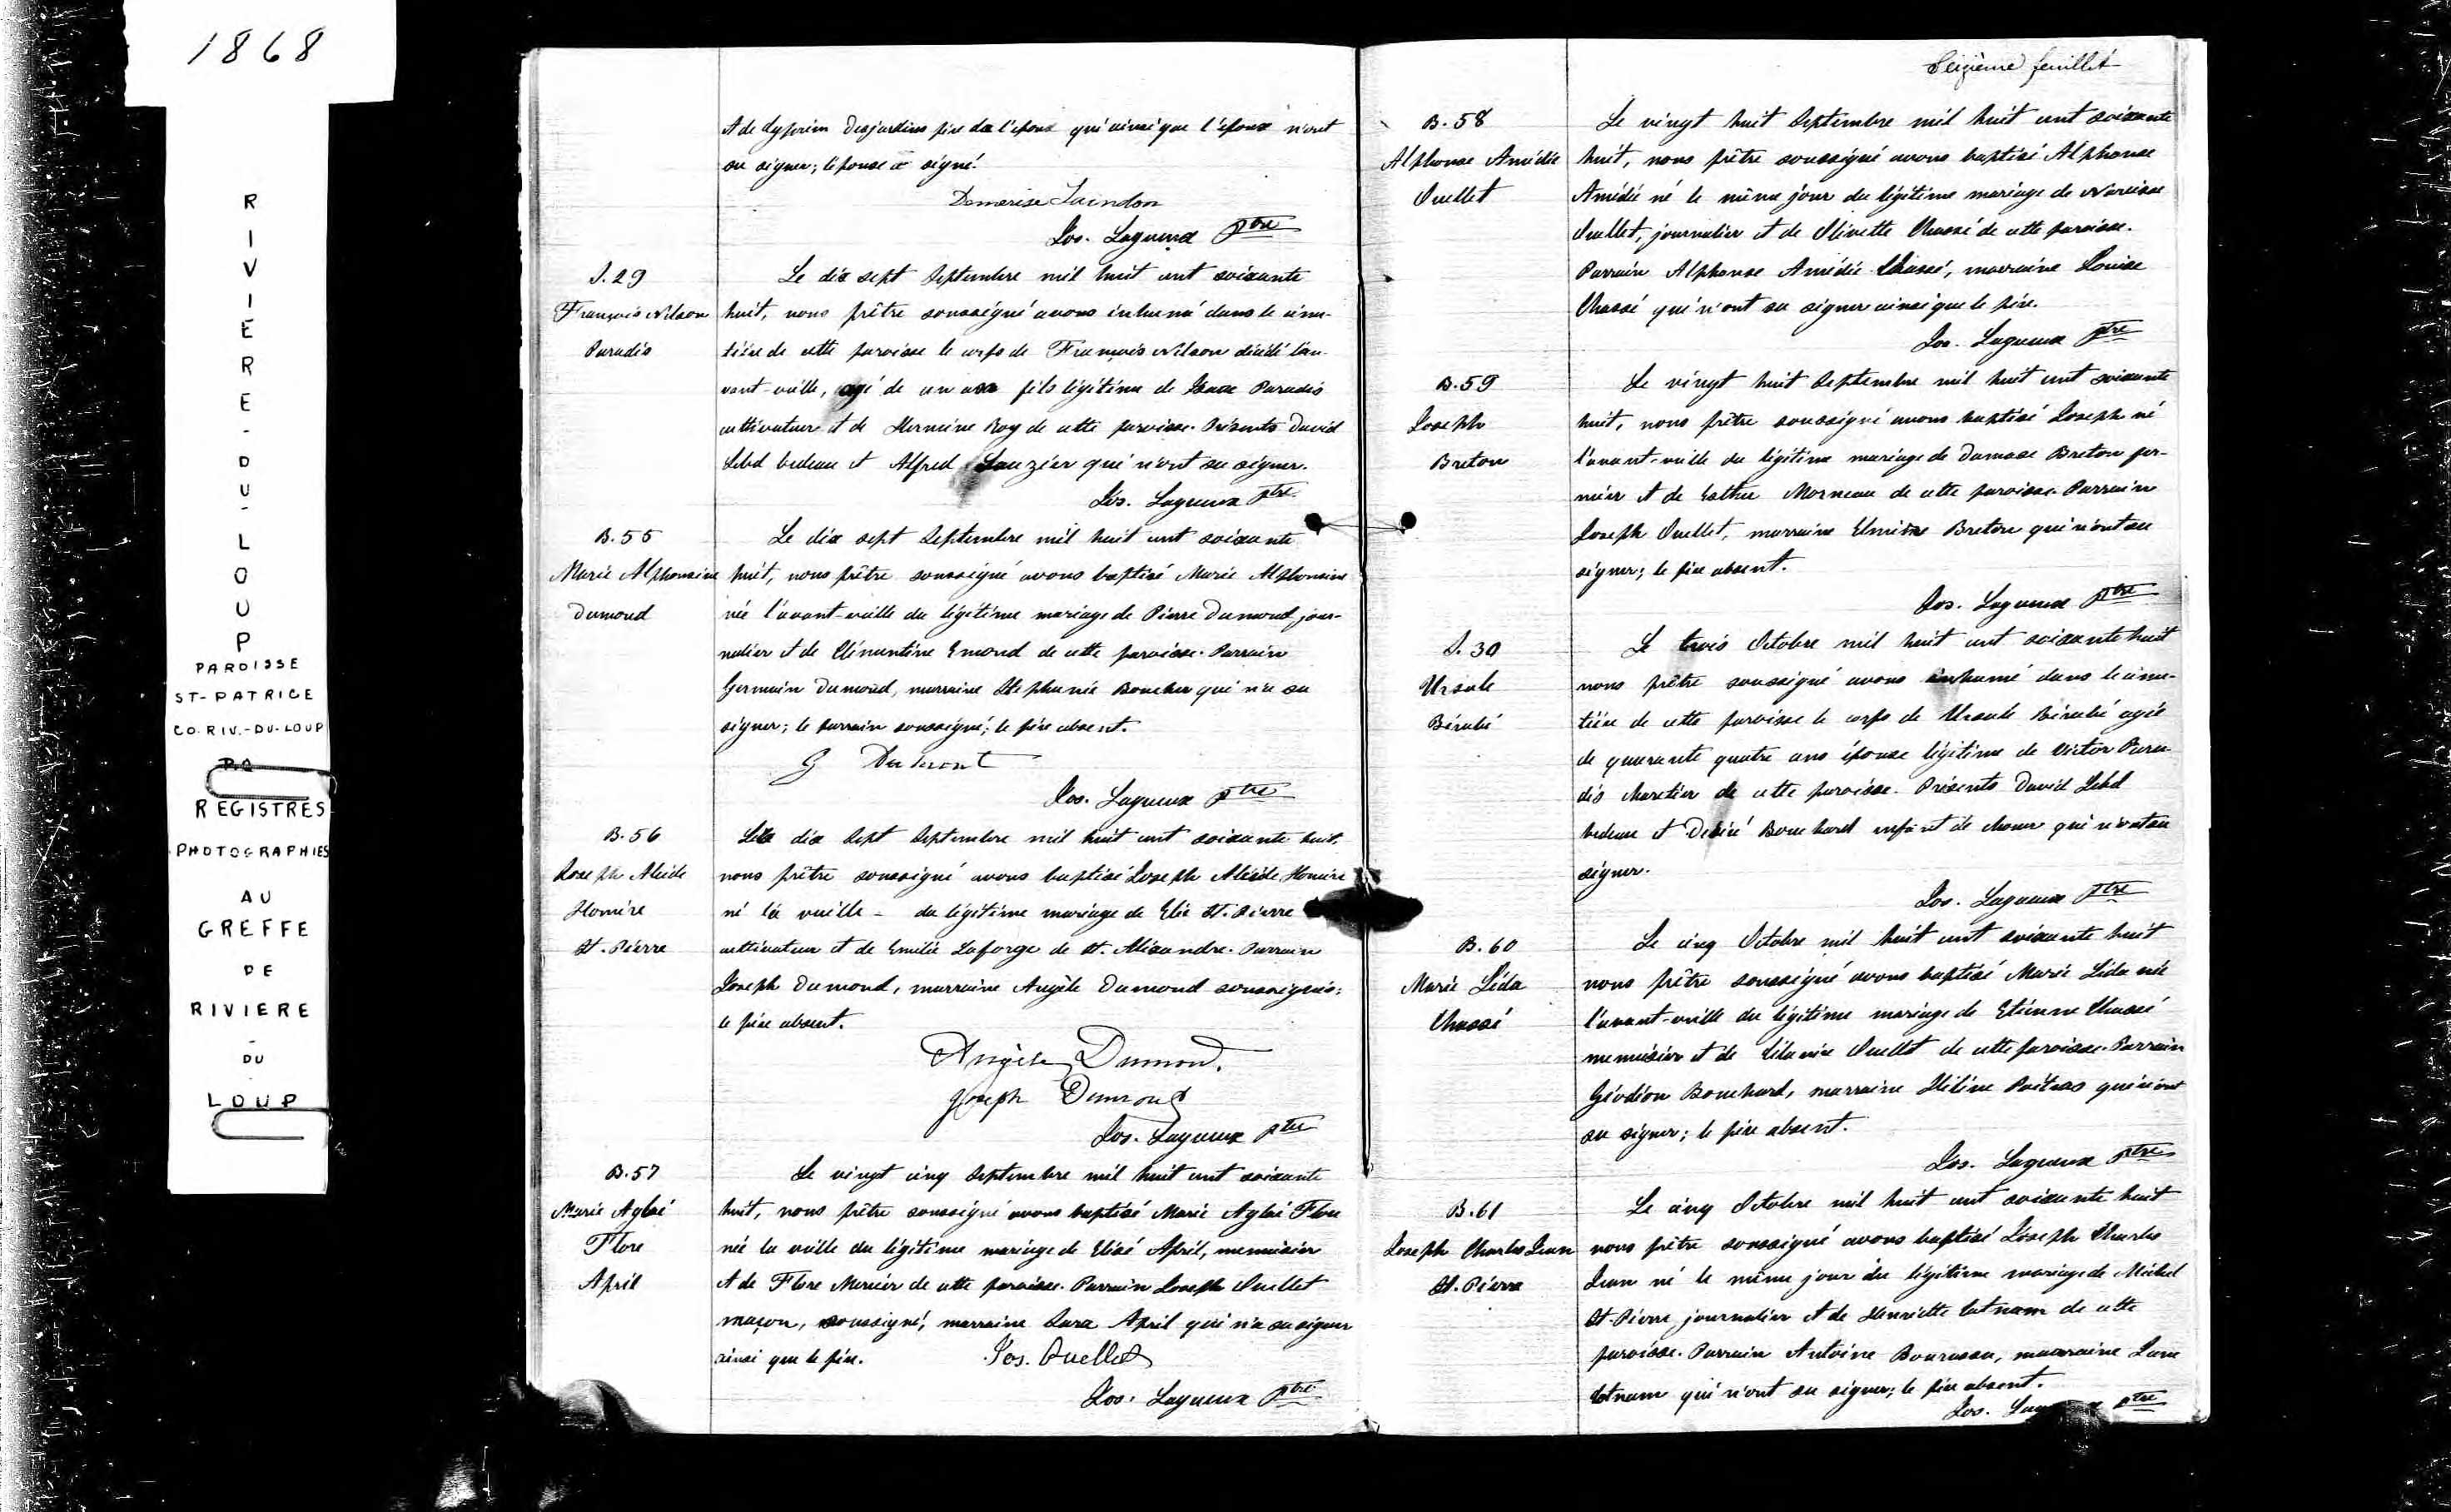 1868
RIVIERE-DU-LOUP
PAROISSE
ST-PATRICE
CO. RIV.-DU-LOUP
REGISTRES
PHOTOGRAPHIES
AU
GREFFE
DE
RIVIERE
-
DU
LOUP
et de Desjardins père de l'époux qui ainsi que l'époux n'ont
su signer; l'épouse a signé.
Demerise Saindon
Jos. Lagueux Ptre
S. 29
François Nelson
Paradis
Le dix sept Septembre mil huit cent soixante
huit, nous prêtre soussigné avons inhumé dans le cime-
tière de cette paroisse le corps de François Nelson décédé l'a-
vant-veille, agé de un an fils légitime de Isaac Paradis
cultivateur et de Hermine Roy de cette paroisse. Présents David
Lebel bedeau et Alfred Lauzier qui n'ont su signer.
Jos. Lagueux Ptre
B. 55
Marie Alphonsine
Dumond
Le dix sept Septembre mil huit cent soixante
huit, nous prêtre soussigné avons baptisé Marie Alphonsine
née l'avant-veille du légitime mariage de Pierre Dumond jour-
nalier et de Clémentine Emond de cette paroisse. Parrain
Germain Dumond, marraine Stephanie Boucher qui n'a su
signer; le parrain soussigné; le père absent.
G Dumont
Jos. Lagueux Ptre
B. 56
Joseph Alcide
Homère
St. Pierre
Le dix Sept Septembre mil huit cent soixante huit,
nous prêtre soussigné avons baptisé Joseph Alcide Homère
né la veille - du légitime mariage de Elie St. Pierre
cultivateur et de Emilie Laforge de St. Alexandre. Parrain
Joseph Dumond, marraine Angèle Dumond soussignés;
le père absent.
Angèle Dumond.
Joseph Dumond
Jos. Lagueux Ptre
B. 57
Marie Aglaé
Flore
April
Le vingt cinq Septembre mil huit cent soixante
huit, nous prêtre soussigné avons baptisé Marie Aglaé Flore
née la veille du légitime mariage de Elisé April, menuisier
et de Flore Mercier de cette paroisse. Parrain Joseph Ouellet
maçon, soussigné, marraine Sara April qui n'a su signer
ainsi que le père. Jos. Ouellet
Jos. Lagueux Ptre
Seizième feuillet
B. 58
Alphonse Amédée
Ouellet
Le vingt huit Septembre mil huit cent soixante
huit, nous prêtre soussigné avons baptisé Alphonse
Amédée né le même jour du légitime mariage de Narcisse
Ouellet, journalier et de Olivette Chassé de cette paroisse.
Parrain Alphonse Amédée Chassé, marraine Louise
Chassé qui n'ont su signer ainsi que le père.
Jos. Lagueux Ptre
B. 59
Joseph
Breton
Le vingt huit Septembre mil huit cent soixante
huit, nous prêtre soussigné avons baptisé Joseph né
l'avant-veille du légitime mariage de Damase Breton fer-
mier et de Esther Morneau de cette paroisse. Parrain
Joseph Ouellet, marraine Elmire Breton qui n'ont su
signer; le père absent.
Jos. Lagueux Ptre
S. 30
Ursule
Bérubé
Le trois Octobre mil huit cent soixante huit
nous prêtre soussigné avons inhumé dans le cime-
tière de cette paroisse le corps de Ursule Bérubé agée
de quarante quatre ans épouse légitime de Victor Para-
dis charetier de cette paroisse. Présents David Lebel
bedeau et Desiré Bouchard enfant de choeur qui n'ont su
signer.
Jos. Lagueux Ptre
B. 60
Marie Léda
Chassé
Le cinq Octobre mil huit cent soixante huit
nous prêtre soussigné avons baptisé Marie Léda née
l'avant-veille du légitime mariage de Etienne Chassé
menuisier et de Ouellet de cette paroisse. Parrain
Gédéon Bouchard, marraine Hélène Poitras qui n'ont
su signer; le père absent.
Jos. Lagueux Ptre
B. 61
Joseph Charles Jean
St. Pierre
Le cinq Octobre mil huit cent soixante huit
nous prêtre soussigné avons baptisé Joseph Charles
Jean né le même jour du légitime mariage de Michel
St-Pierre journalier et de Henriette de cette
paroisse. Parrain Antoine Bourassa, marraine
qui n'ont su signer; le père absent.
Jos. Lagueux Ptre